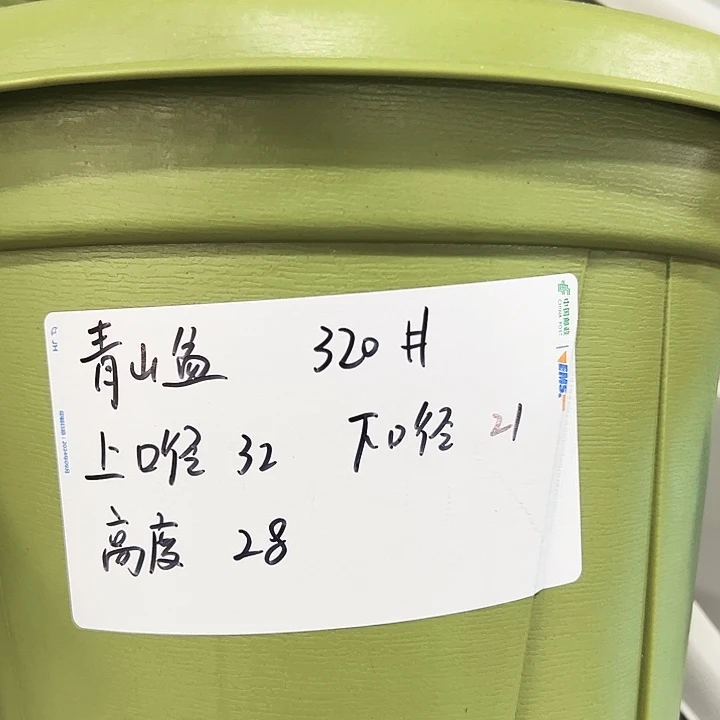 青山盆 320#
上口径 32 下口径 21
高度 28
中国邮政
CHINA POST
EMS